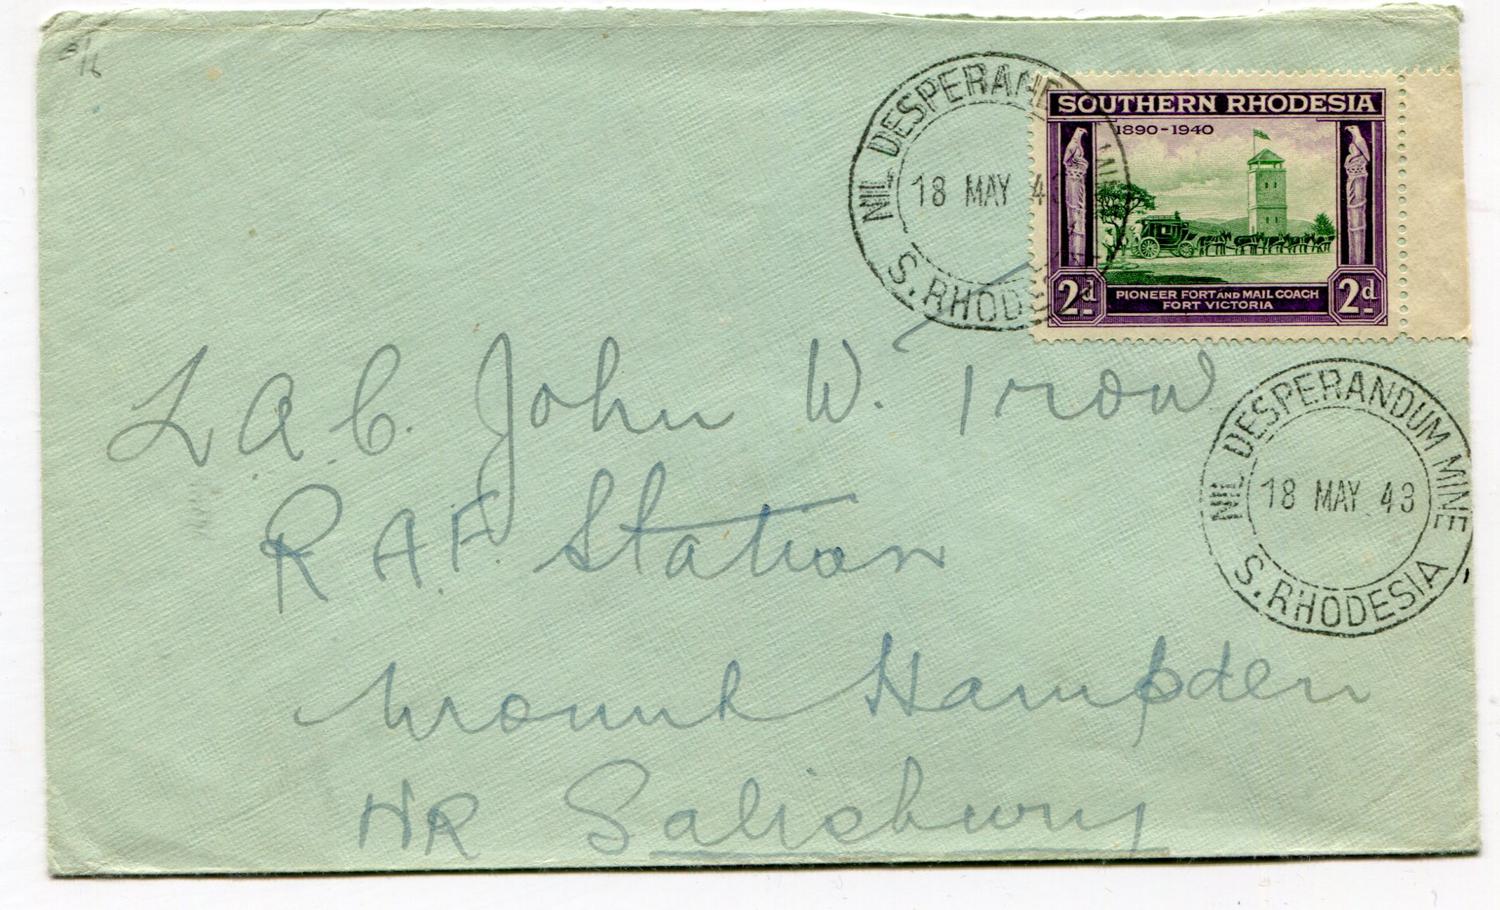 SOUTHERN RHODESIA
1890-1940
2d 2d
PIONEER FORT AND MAIL COACH
FORT VICTORIA
NIL DESPERAND
18 MAY 43
S. RHOD
NIL DESPERANDUM MINE
18 MAY 43
S. RHODESIA
L A C. John W. Trow
R A F. Station
Mount Hampden
NR Salisbury